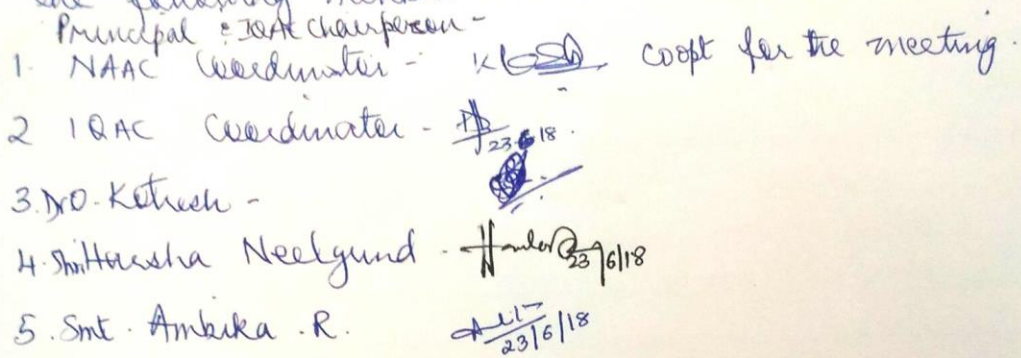 the following
Principal & IQAC Chairperson -
1. NAAC Coordinator - coopt for the meeting.
2 IQAC Coordinator - 23.6.18.
3. Dr O. Kotresh -
4. Shri Harsha Neelgund - 23/6/18
5. Smt. Ambika .R. 23/6/18